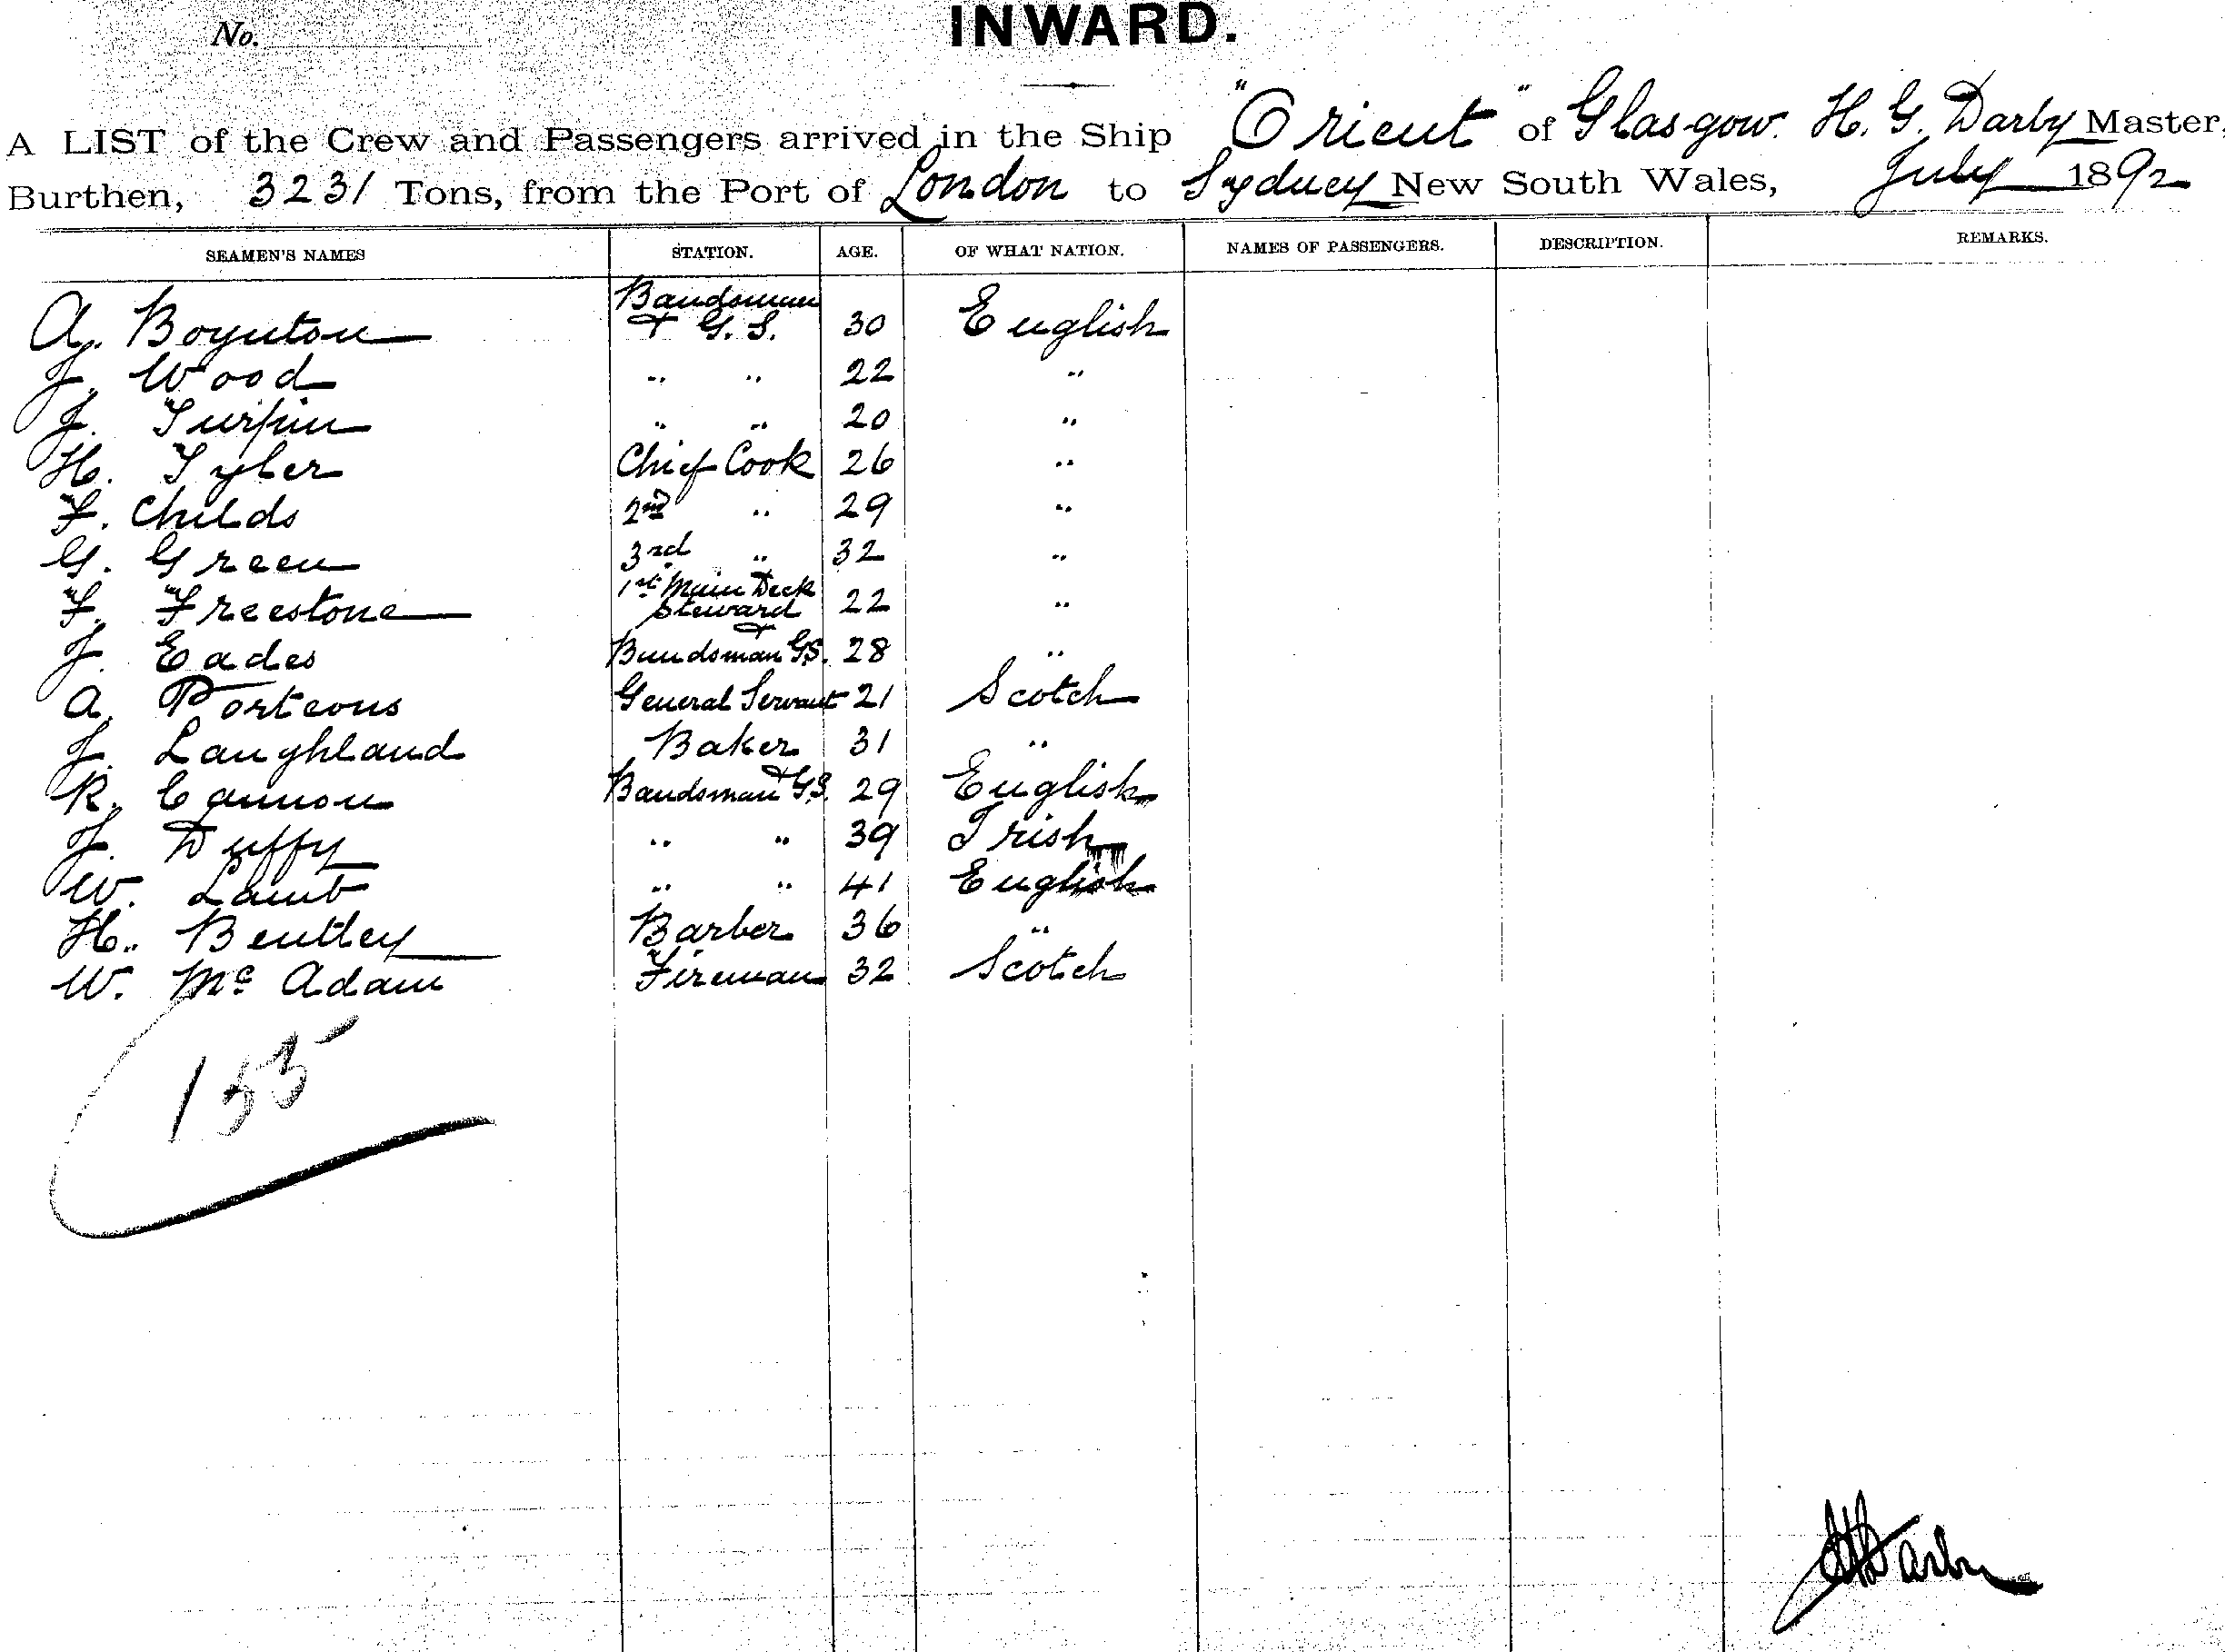 No.
INWARD.
A LIST of the Crew and Passengers arrived in the Ship "Orient" of Glasgow. H. G. Darby Master,
Burthen, 3231 Tons, from the Port of London to Sydney New South Wales, July 1892
SEAMEN'S NAMES STATION. AGE. OF WHAT NATION. NAMES OF PASSENGERS. DESCRIPTION. REMARKS.
A. Boynton Bandsman + G. S. 30 English
J. Wood " " 22 "
J. Turpin " " 20 "
H. Tyler Chief Cook 26 "
F. Childs 2nd " 29 "
G. Green 3rd " 32 "
F. Freestone 1st Main Deck Steward 22 "
J. Eades Bandsman + GS. 28 "
A. Porteous General Servant 21 Scotch
J. Laughland Baker 31 "
R. Cannon Bandsman + G.S. 29 English
J. Duffy " " 39 Irish
W. Lamb " " 41 English
H. Bentley Barber 36 "
W. Mc Adam Fireman 32 Scotch
155
HGDarby